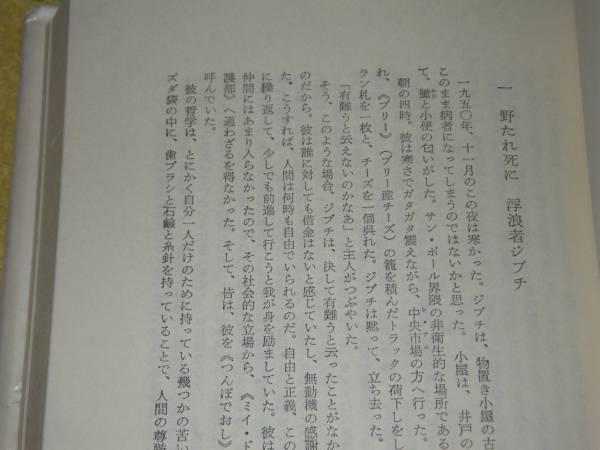 一 野たれ死に 浮浪者ジプチ
一九五〇年、十一月のこの夜は寒かった。ジプチは、物置き小屋の古
このまま病者になってしまうのではないかと思った。小屋は、井戸の
て、黴と小便の匂いがした。サン・ポール界隈の非衛生的な場所である
朝の四時。彼は寒さでガタガタ震えながら、中央市場の方へ行った。
れ、《ブリー》(ブリー産チーズ)の籠を積んだトラックの荷下しをし
ラン札を一枚と、チーズを一個呉れた。ジプチは黙って、立ち去った。
「有難うと云えないのかなあ」と主人がつぶやいた。
そう、このような場合、ジプチは、決して有難うと云ったことがなか
のだから。彼は誰に対しても借金はないと感じていたし、無動機の感謝
た。こうすれば、人間は何時も自由でいられるのだ。自由と正義、この
に繰り返して、少しでも前進して行こうと我が身を励ましていた。彼は
仲間にはあまり入らなかったので、その社会的な立場から、《ミイ・ド
護部》へ通わざるを得なかった。そして、皆は、彼を《つんぼでおし》
呼んでいた。
彼の哲学は、とにかく自分一人だけのために持っている幾つかの苦い
ズダ袋の中に、歯ブラシと石鹸と糸針を持っていることで、人間の尊厳